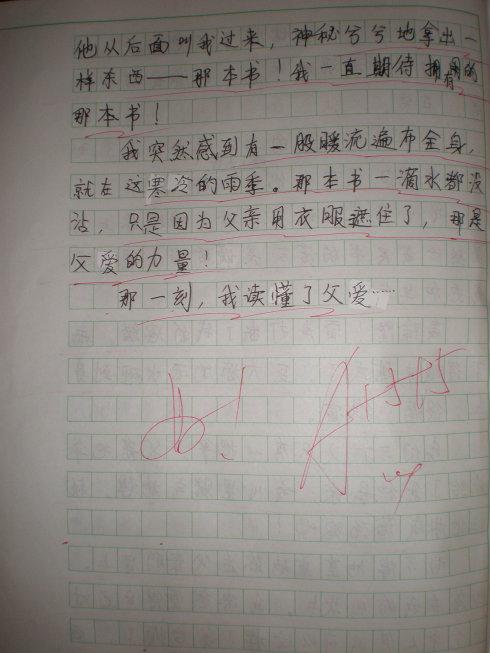 他从后面叫我过来，神秘兮兮地拿出一
样东西——那本书！我一直期待拥有的
那本书！
我突然感到有一股暖流遍布全身，
就在这寒冷的雨季。那本书一滴水都没
沾，只是因为父亲用衣服遮住了，那是
父爱的力量！
那一刻，我读懂了父爱……